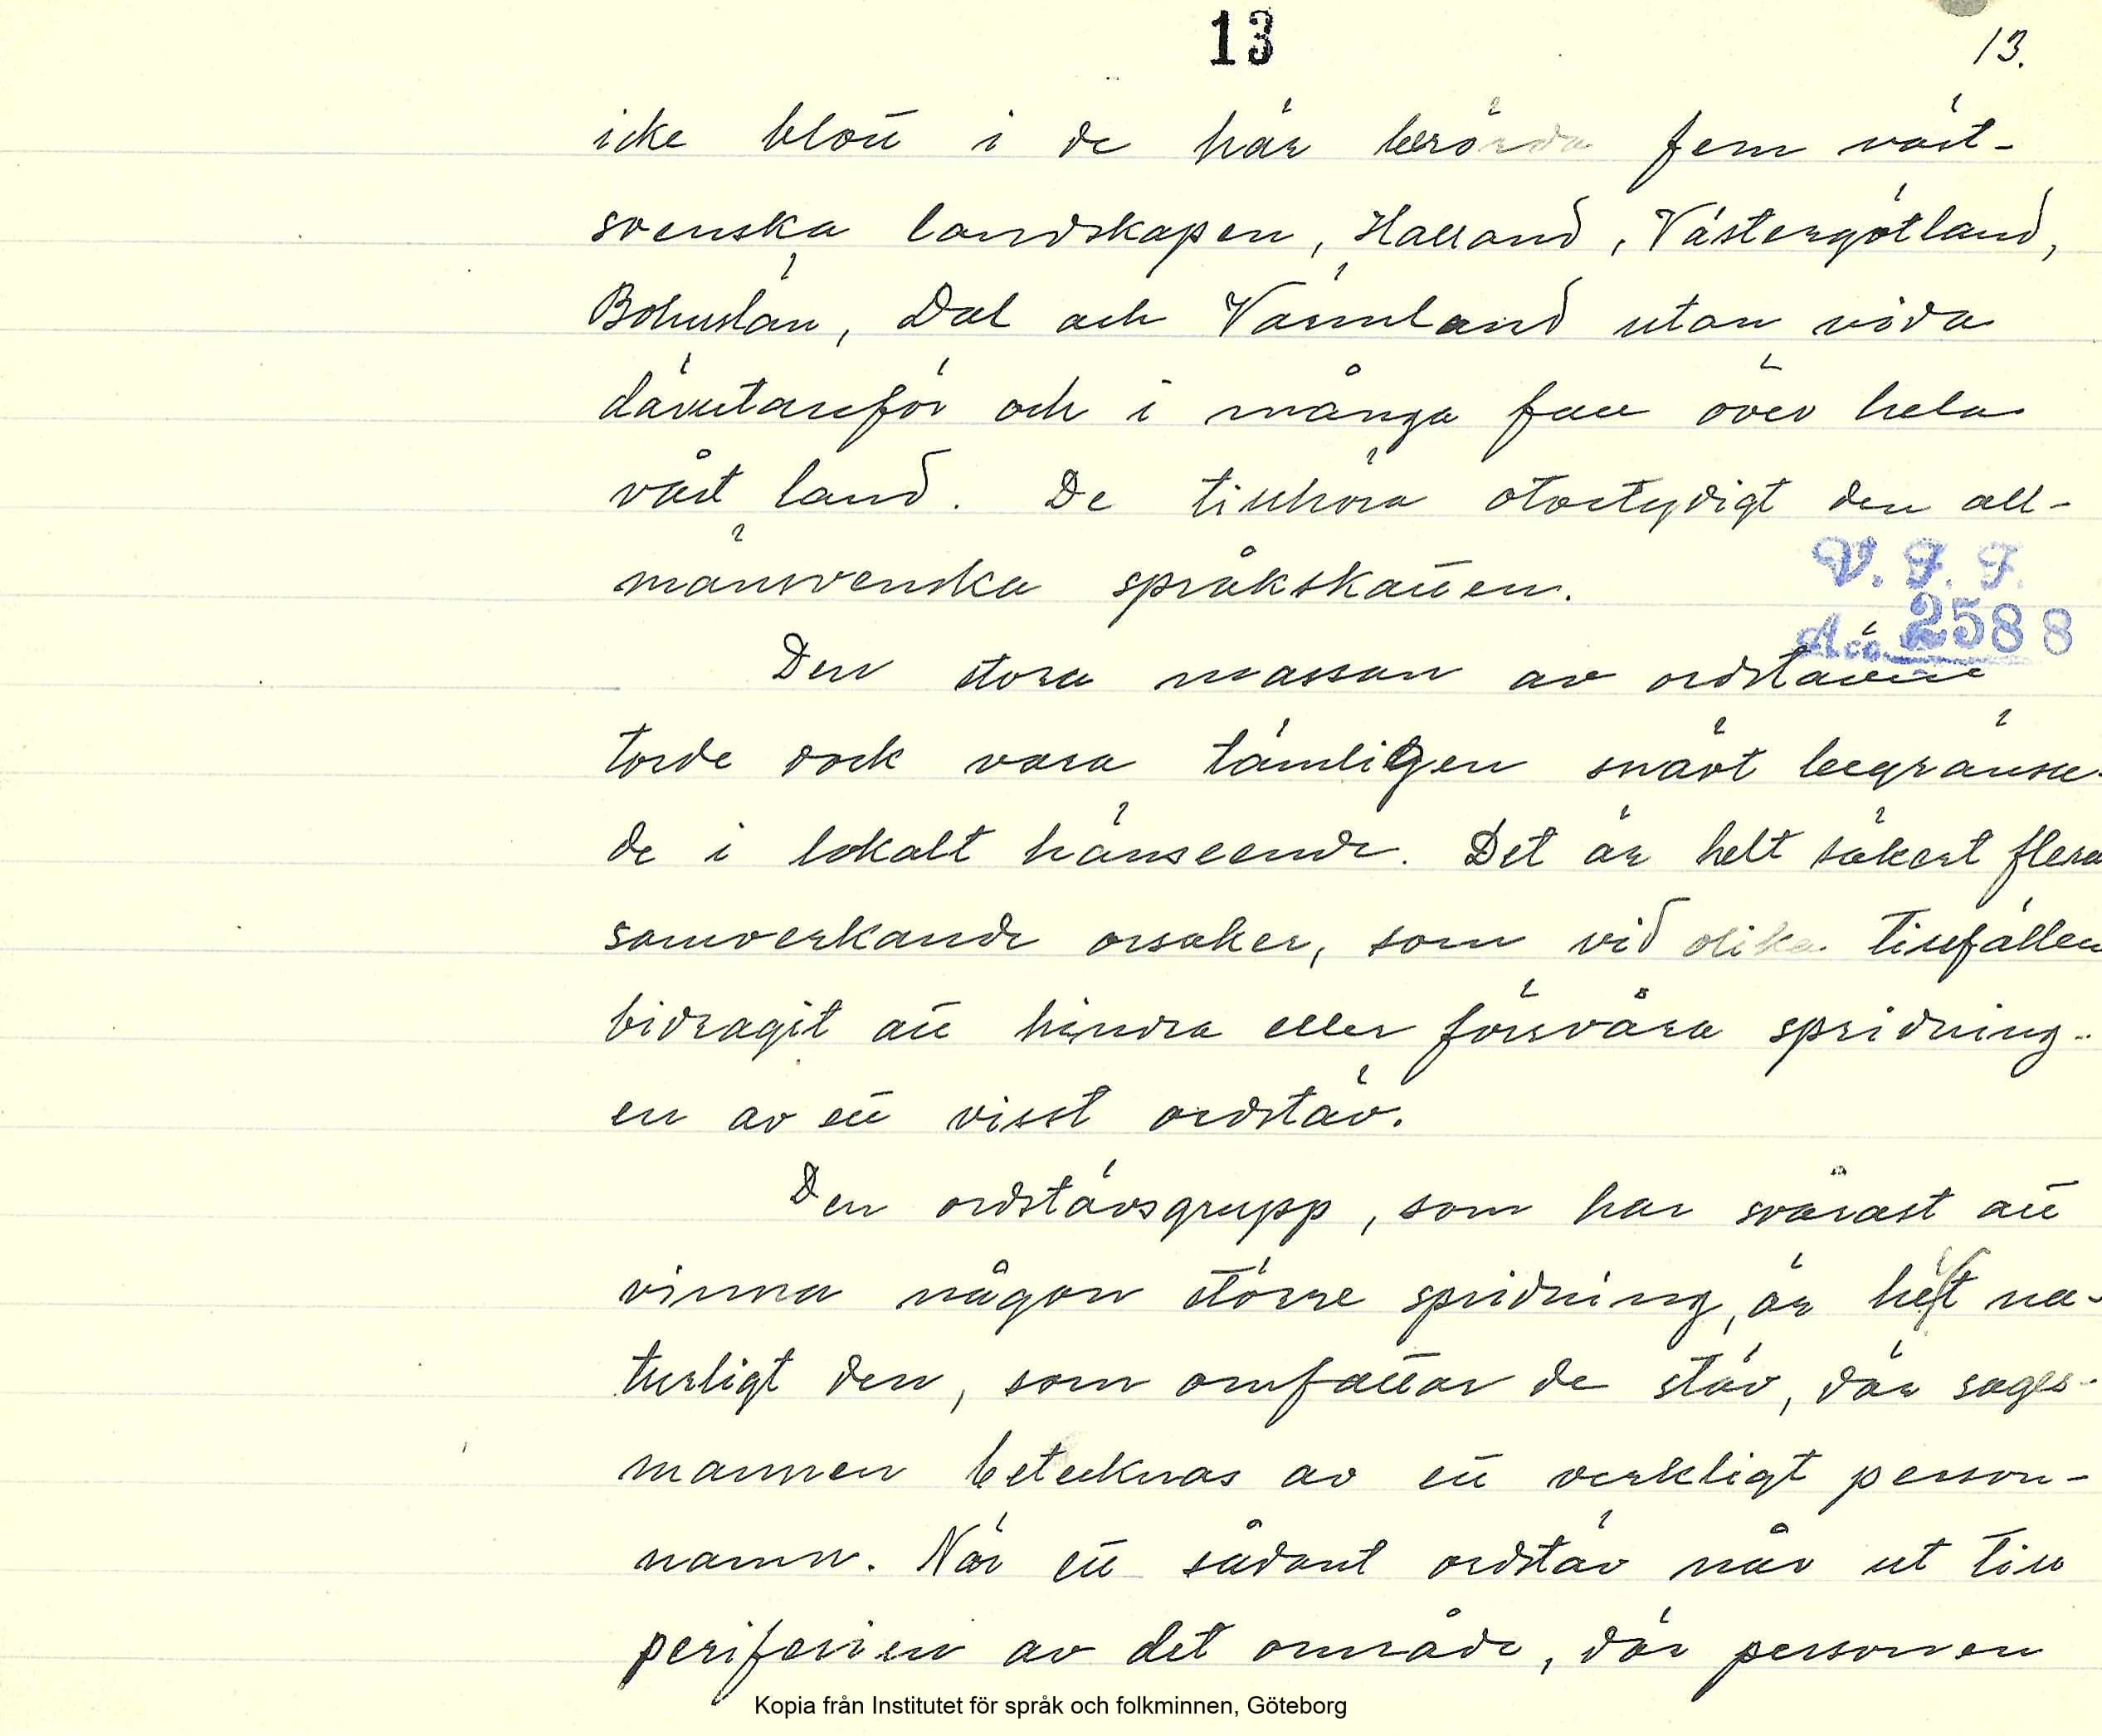 13
13.
icke blott i de här berörda fem väst-
svenska landskapen, Halland, Västergötland,
Bohuslän, Dal och Värmland utan vida
därutanför och i många fall över hela
vårt land. De tillhöra otvetydigt den all-
mänsvenska språkskatten.
V. F. F.
Acc. 2588
Den stora massan av ordstäven
torde dock vara tämligen snävt begränsa-
de i lokalt hänseende. Det är helt säkert flera
samverkande orsaker, som vid olika tillfällen
bidragit att hindra eller försvåra spridning-
en av ett visst ordstäv.
Den ordstävsgrupp, som har svårast att
vinna någon större spridning, är helt na-
turligt den, som omfattar de stäv, där sages-
mannen betecknas av ett verkligt person-
namn. När ett sådant ordstäv når ut till
periferien av det område, där personen
Kopia från Institutet för språk och folkminnen, Göteborg